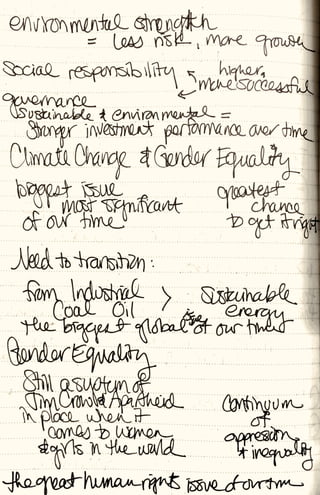 environmental strength
= less risk, more growth
social responsibility higher,
more successful
governance
sustainable & environmental =
Stronger investment performance over time
Climate Change & Gender Equality
biggest issue greatest
most significant chance
of our time to get it right
Need to transition:
from Industrial > Sustainable
Coal Oil energy
the biggest global issue of our times
Gender Equality
Still a system of
Jim Crow & Apartheid continuum
in place when it of
comes to women oppression
& girls in the world & inequality
the great human rights issue of our time